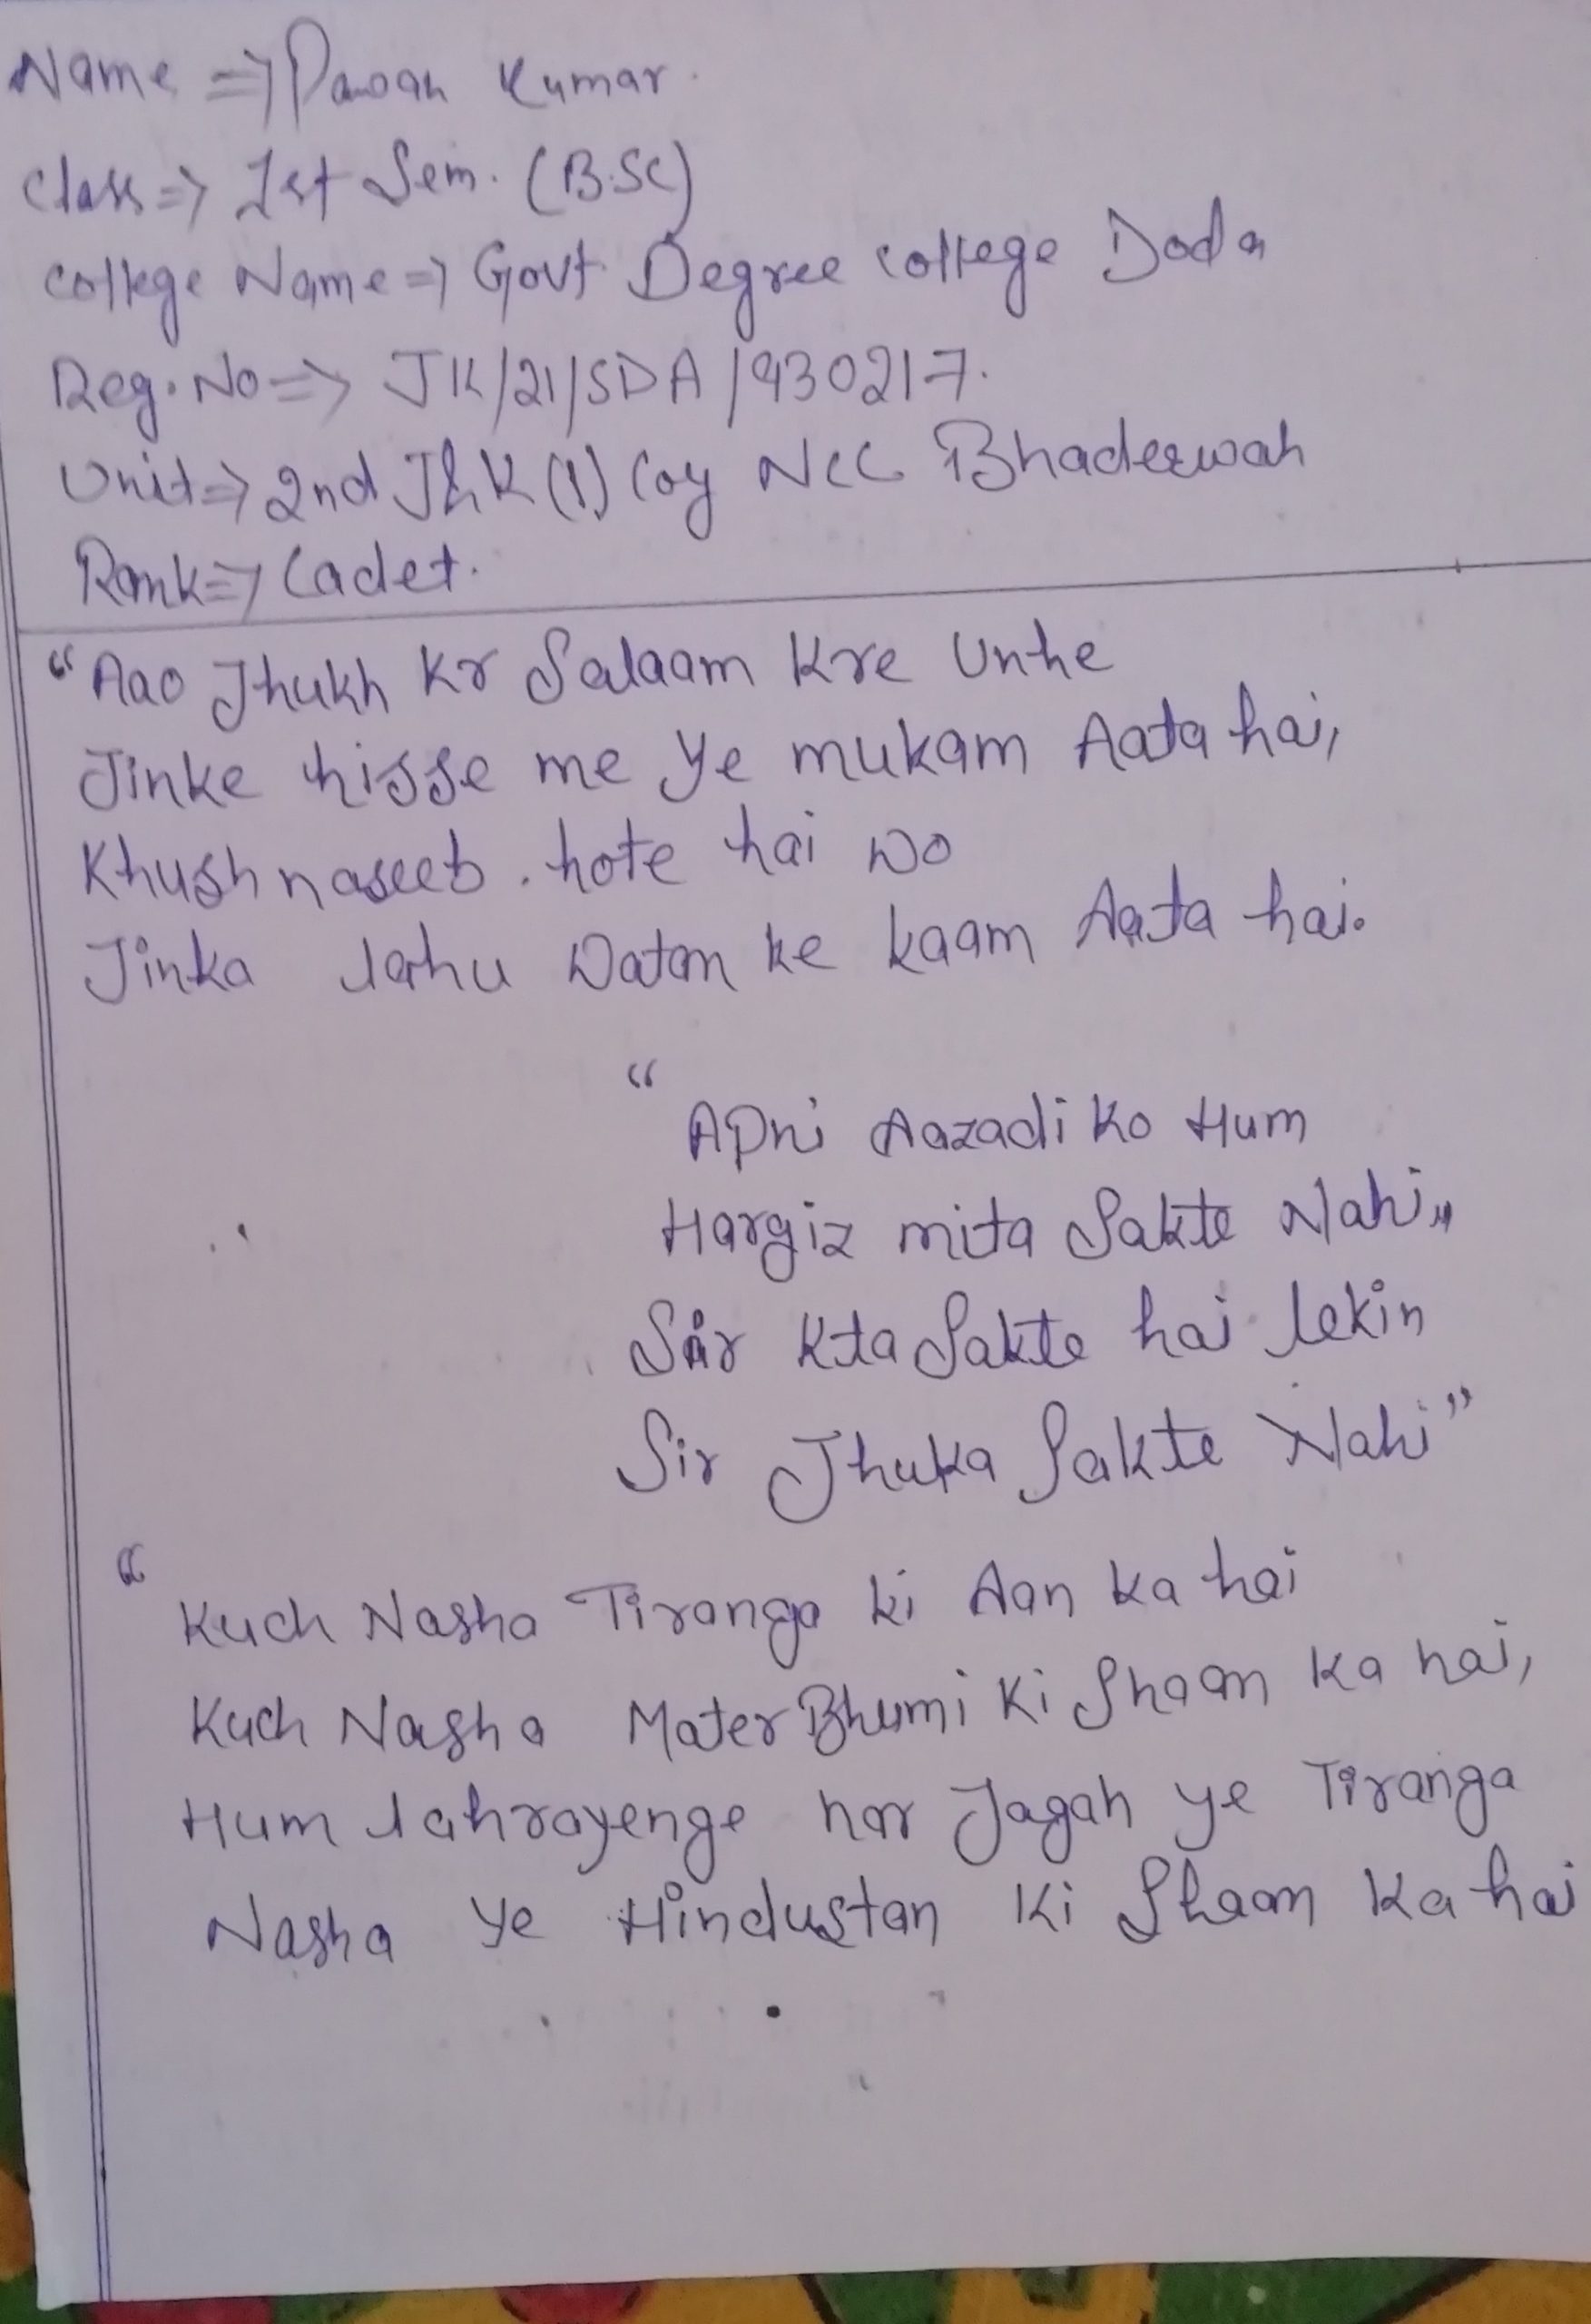 Name => Pawan Kumar.
Class => Ist Sem. (B.SC)
College Name => Govt Degree College Doda
Reg. No => JK/21/SDA/930217.
Unit => 2nd J&K (I) Coy NCC Bhaderwah
Rank => Cadet.
"Aao Jhukh Kr Salaam Kre Unhe
Jinke hisse me ye mukam Aata hai,
Khushnaseeb. hote hai wo
Jinka lahu Watan ke kaam Aata hai.
"
Apni Aazadi Ko Hum
Hargiz mita Sakte Nahi,,
Sir Kta Sakte hai lekin
Sir Jhuka Sakte Nahi"
"
Kuch Nasha Tiranga ki Aan Ka hai
Kuch Nasha MaterBhumi Ki Shaan Ka hai,
Hum lahrayenge har Jagah ye Tiranga
Nasha ye Hindustan Ki Shaan Ka hai